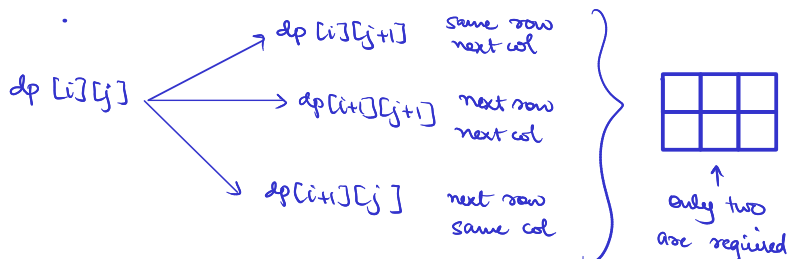 dp [i][j+1] same row
next col
dp [i][j]
dp[i+1][j+1] next row
next col
dp[i+1][j] next row
same col
only two
are required